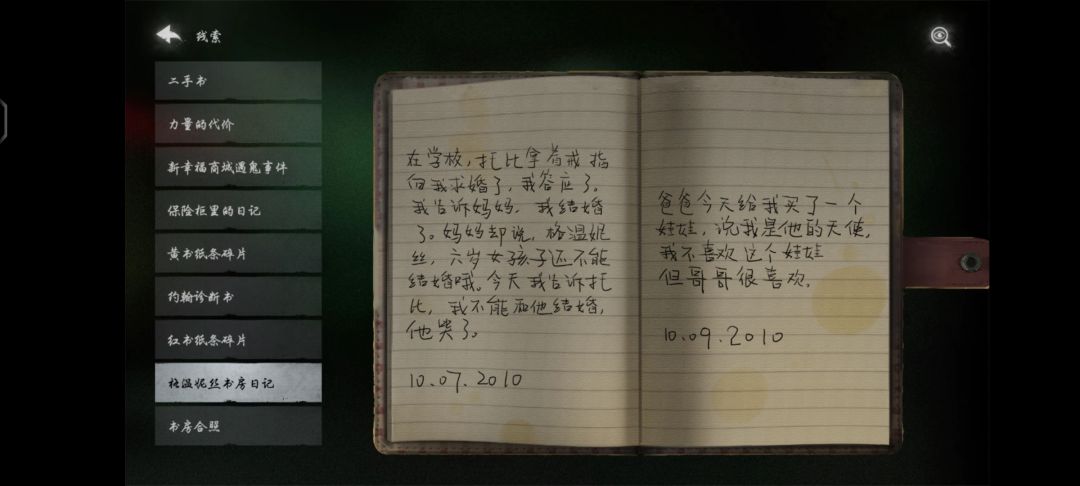 线索
二手书
力量的代价
新幸福商城遇鬼事件
保险柜里的日记
黄书纸条碎片
约翰诊断书
红书纸条碎片
格温妮丝书房日记
书房合照
在学校，托比拿着戒指
向我求婚了，我答应了。
我告诉妈妈，我结婚
了。妈妈却说，格温妮
丝，六岁女孩子还不能
结婚哦。今天我告诉托
比，我不能和他结婚，
他哭了。
10.07.2010
爸爸今天给我买了一个
娃娃，说我是他的天使，
我不喜欢这个娃娃
但哥哥很喜欢。
10.09.2010